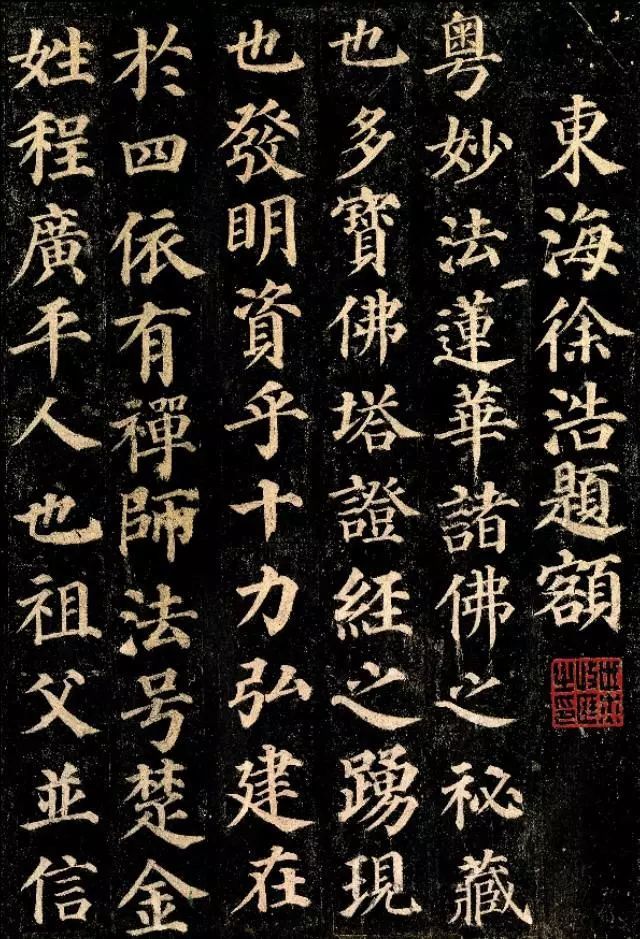 東海徐浩題額
粵妙法蓮華諸佛之祕藏
也多寶佛塔證經之踴現
也發明資乎十力弘建在
於四依有禪師法号楚金
姓程廣平人也祖父並信